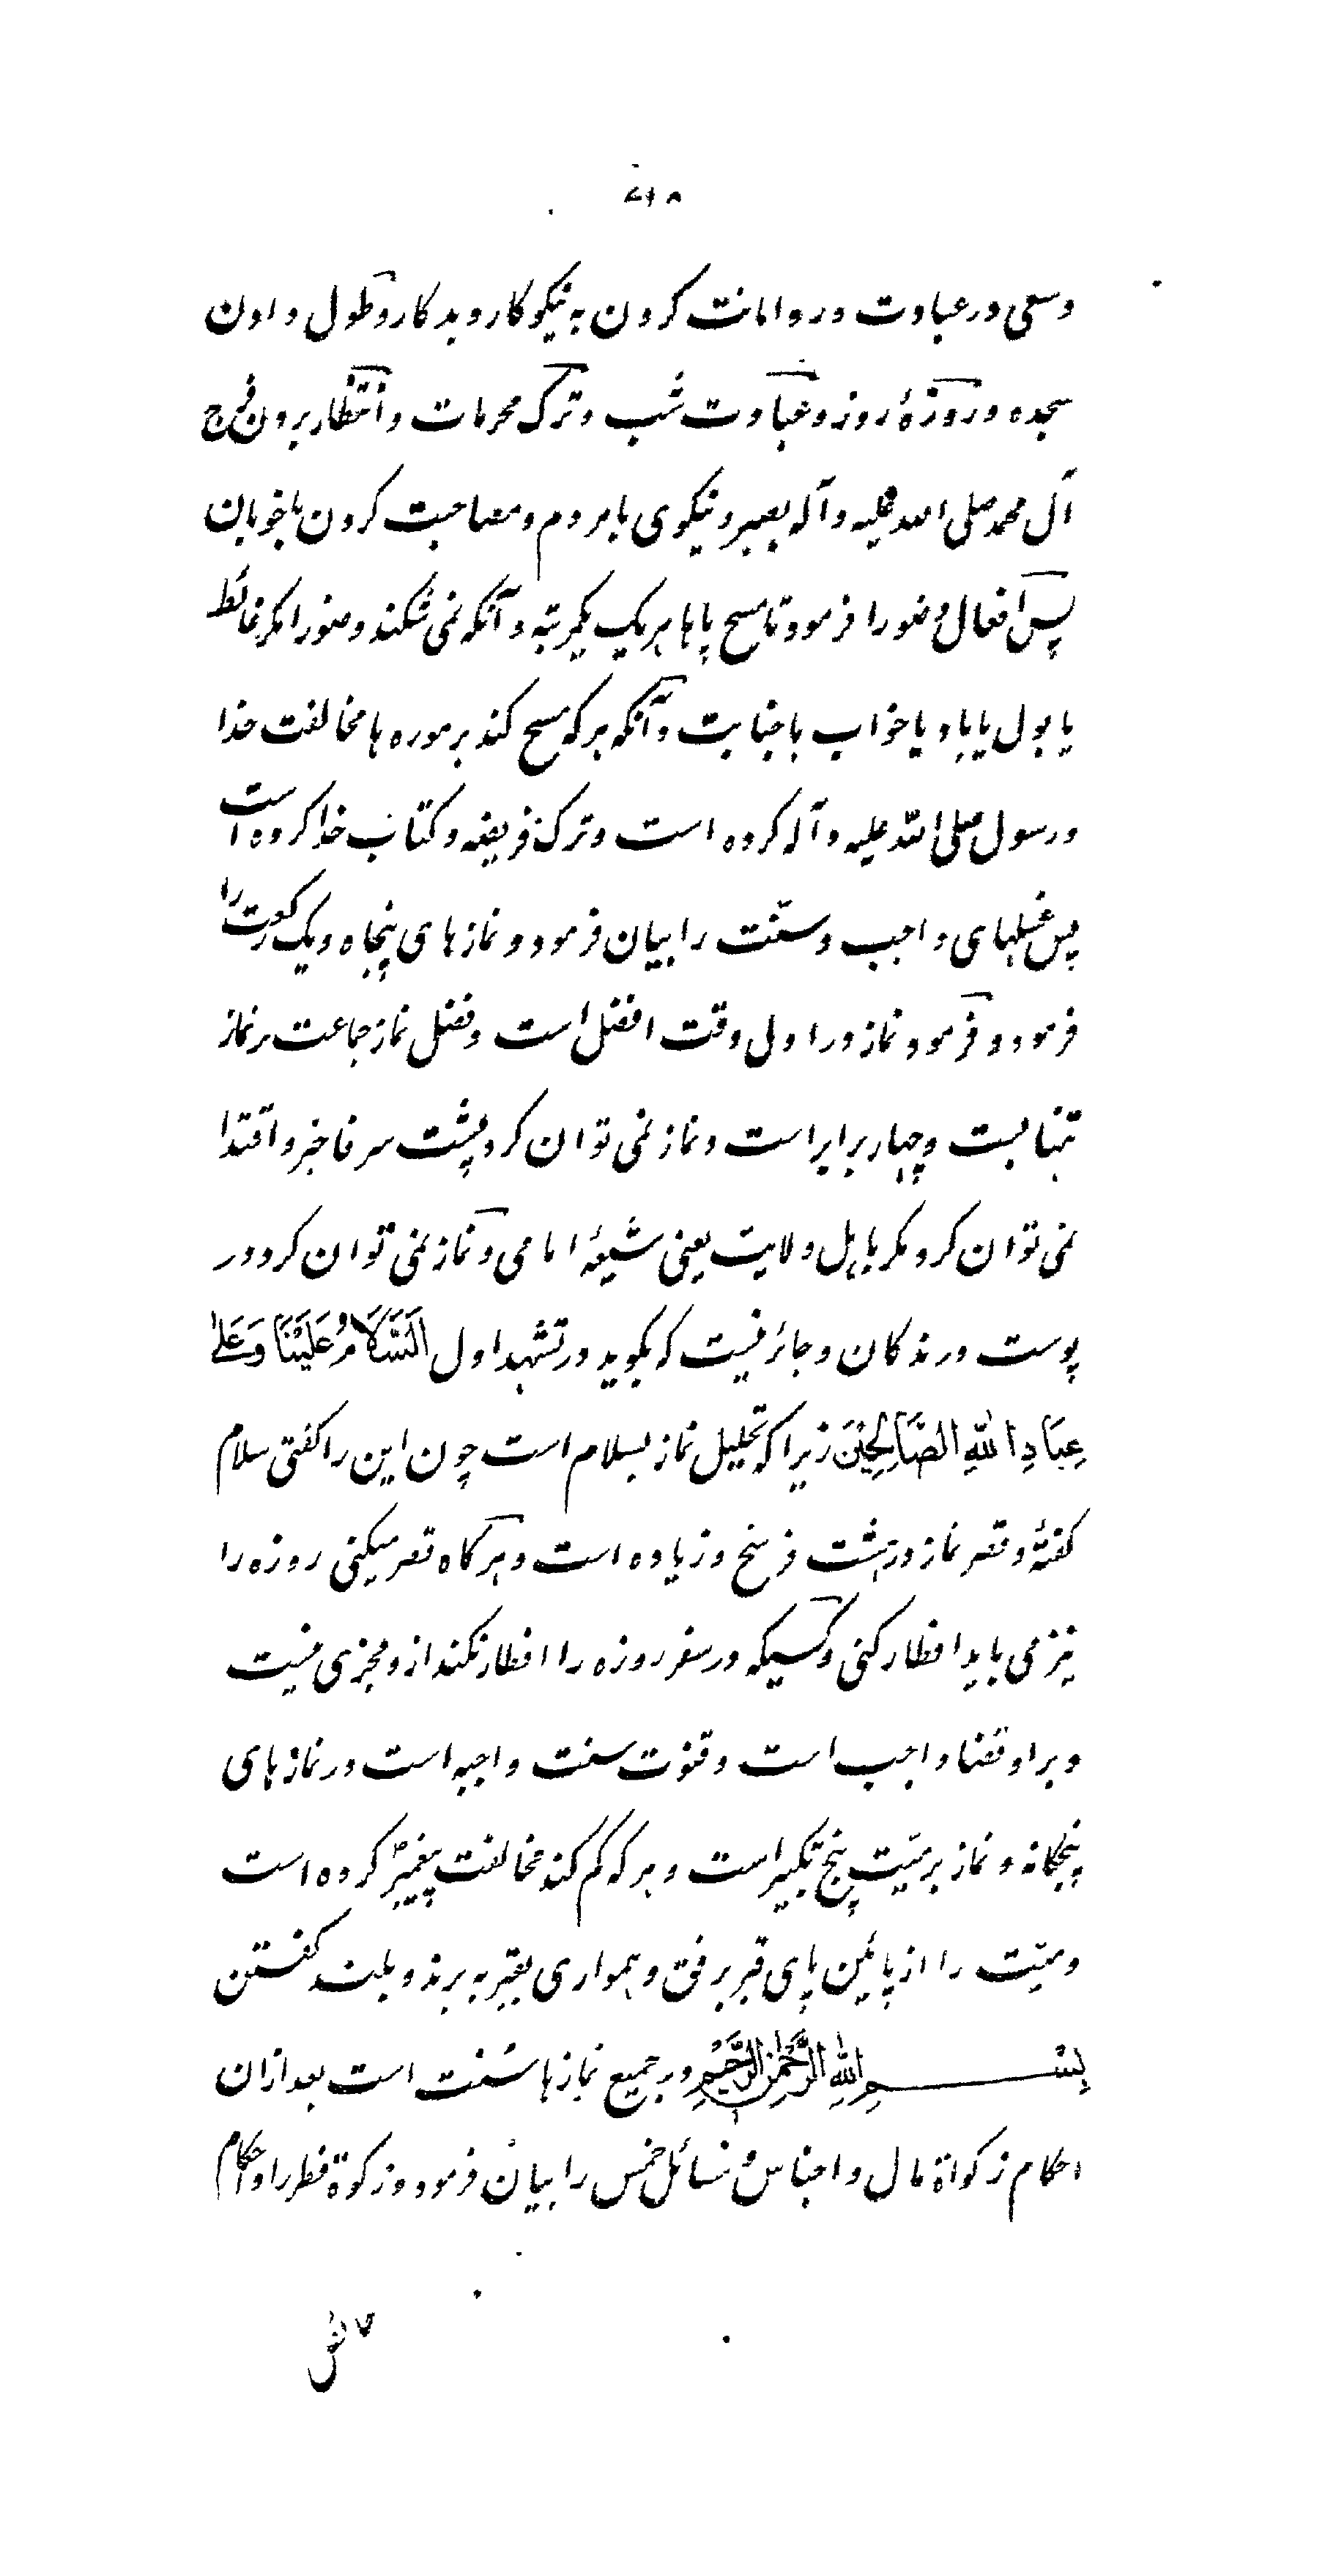 وسعی در عبادت ورد امانت کردن به نیکوکار و بدکار و طول دادن
سجده و روزهٔ روز و عبادت شب و ترک محرمات و انتظار بردن فرج
آل محمد صلی الله علیه و آله بصبر و نیکوی با مردم و مصاحبت کردن با خوبان
پس افعال وضو را فرمود تا مسح پاها هر یک یکمرتبه و آنکه نمی شکند وضو را مکر غائط
یا بول یا باد یا خواب یا جنابت و آنکه هر که مسح کند بر موزه ها مخالفت خدا
و رسول صلی الله علیه و آله کرده است و ترک فریضه و کتاب خدا کرده است
پس غسلهای واجب و سنت را بیان فرمود و نمازهای پنجاه و یک رکعت را
فرمود و فرمود نماز در اول وقت افضل است و فضل نماز جماعت بر نماز
تنها بست و چهار برابر است و نماز نمی توان کرد پشت سر فاجر و اقتدا
نمی توان کرد مکر باهل ولایت یعنی شیعهٔ امامی و نماز نمی توان کرد در
پوست درندکان و جائز نیست که بکوید در تشهد اول اَلسَّلَامُ عَلَیْنَا وَعَلیٰ
عِبَادِ اللهِ الصَّالِحِیْنَ زیرا که تحلیل نماز بسلام است چون این را کفتی سلام
کفتهٔ و قصر نماز در هشت فرسخ و زیاده است و هر کاه قصر میکنی روزه را
نیز می باید افطار کنی و کسیکه در سفر روزه را افطار نکند از و مجزی نیست
و بر او قضا واجب است و قنوت سنت واجبه است در نمازهای
پنجکانه و نماز بر میّت پنج تکبیر است و هر که کم کند مخالفت پیغمبرؐ کرده است
و میّت را از پائین پای قبر برفق و همواری بقبر به برند و بلند کفتن
بِسْمِ اللهِ الرَّحْمٰنِ الرَّحِیْمِ در جمیع نمازها سُنت است بعد ازان
احکام زکواة مال و اجناس و مسائل خمس را بیان فرمود و زکوة فطر را و احکام